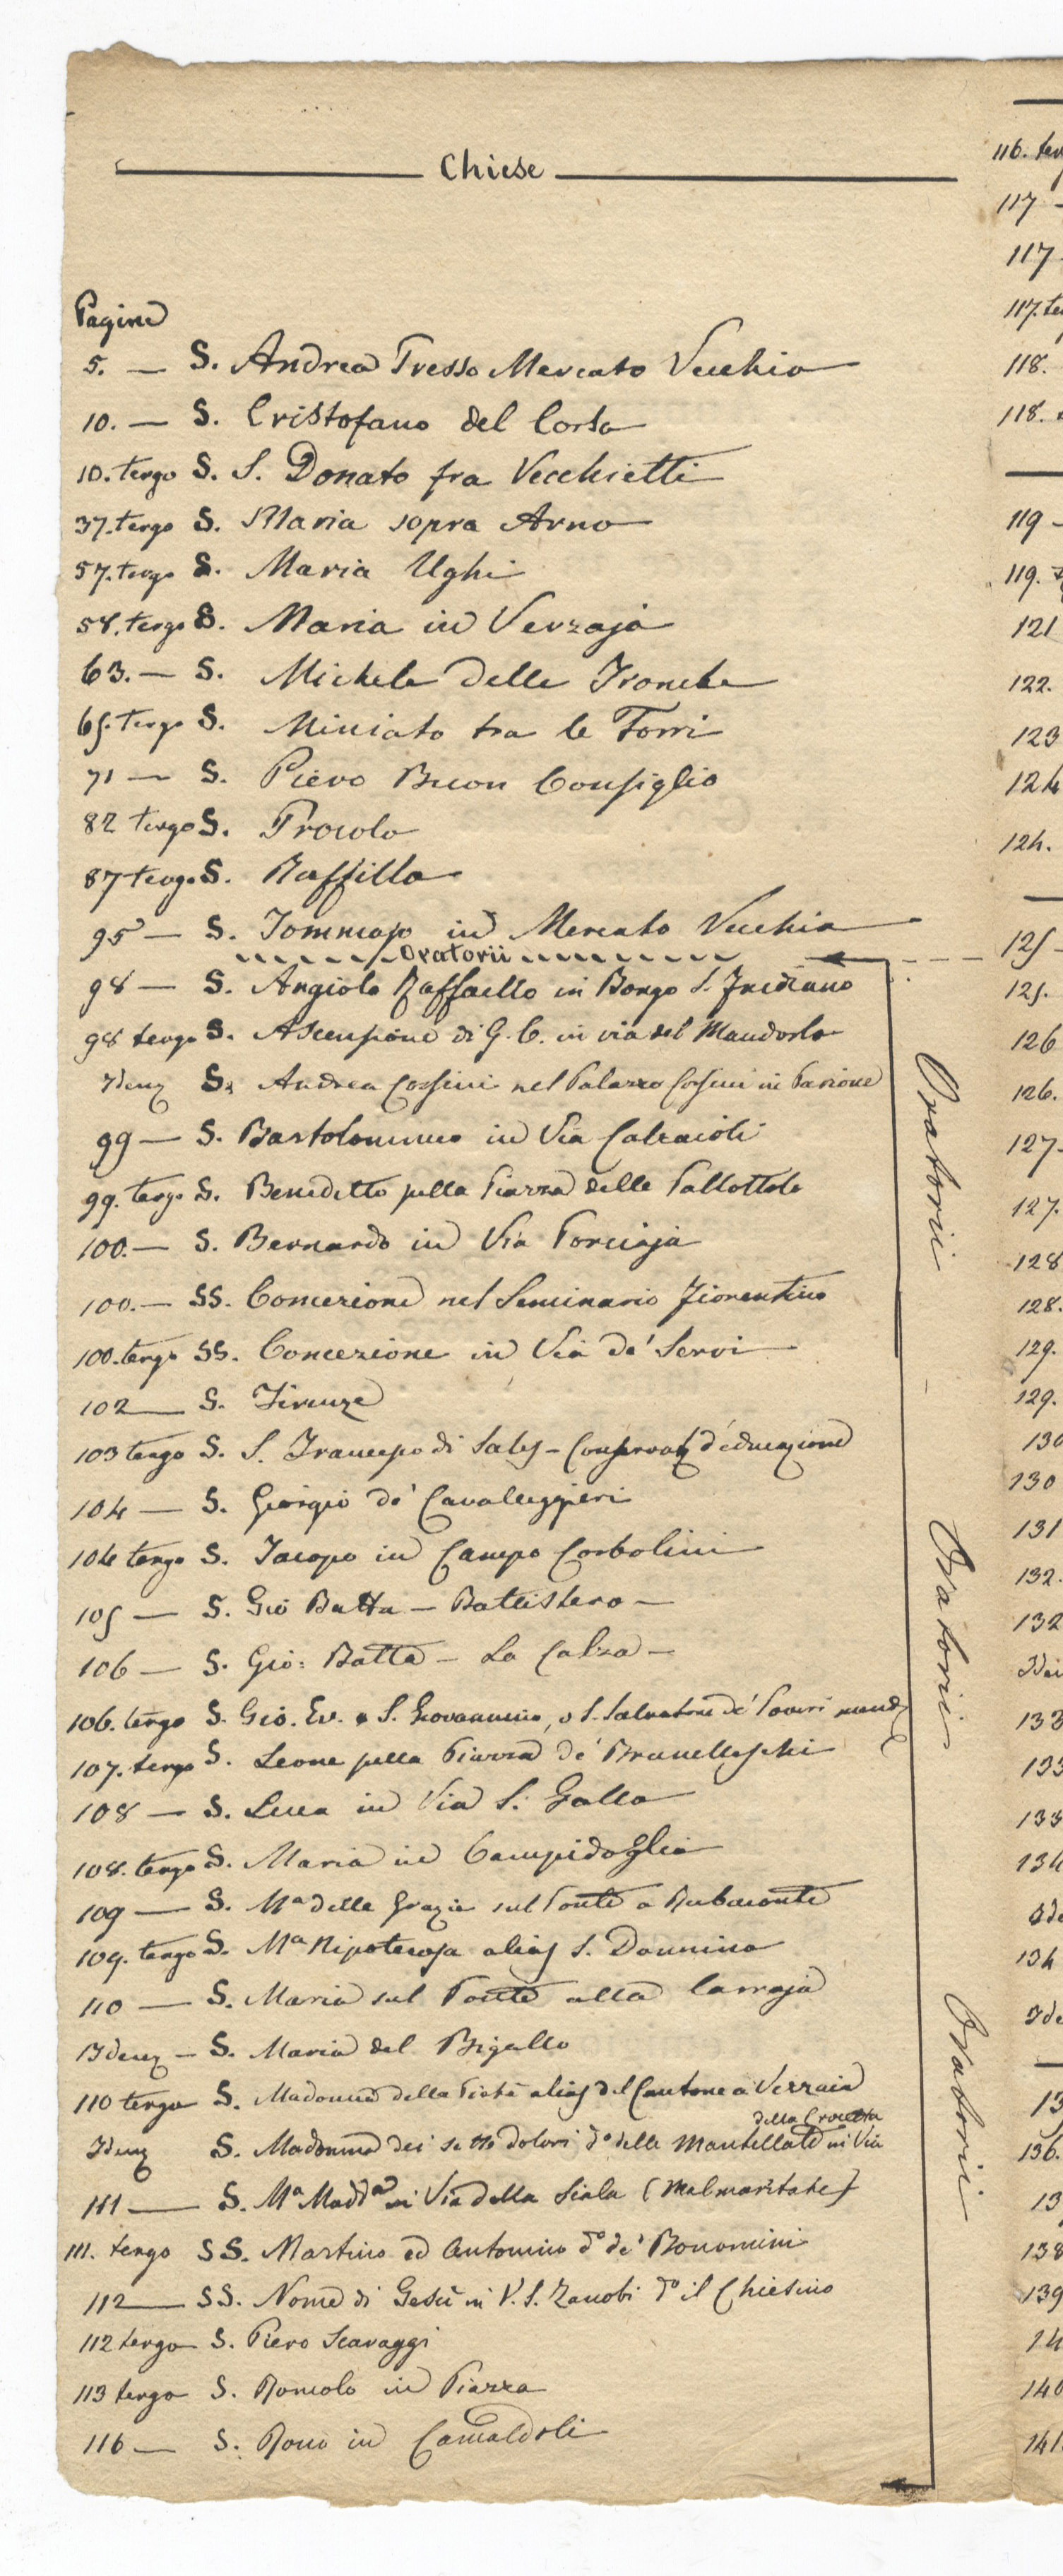 Chiese
Pagine
5. — S. Andrea Presso Mercato Vecchio
10. — S. Cristofano del Corso
10. tergo S. S. Donato fra Vecchietti
37. tergo S. Maria sopra Arno
57. tergo S. Maria Ughi
58. tergo S. Maria in Verzaja
63. — S. Michele delle Tronche
65. tergo S. Miniato tra le Torri
71 — S. Piero Buon Consiglio
82 tergo S. Procolo
87 tergo S. Ruffillo
95 — S. Tommaso in Mercato Vecchio
Oratorii
98 — S. Angiolo Raffaello in Borgo S. Frediano
98 tergo S. Ascensione di G. C. in via del Mandorlo
Idem S. Andrea Corsini nel Palazzo Corsini in Parione
99 — S. Bartolommeo in Via Calzaioli
99. tergo S. Benedetto sulla Piazza delle Pallottole
100. — S. Bernardo in Via Porciaja
100. — SS. Concezione nel Seminario Fiorentino
100. tergo SS. Concezione in Via de' Servi
102 — S. Firenze
103 tergo S. S. Francesco di Sales – Conservat d'educazione
104 — S. Giorgio de' Cavalleggieri
104 tergo S. Jacopo in Campo Corbolini
105 — S. Gio Batta – Battistero –
106 — S. Gio: Batta – La Calza –
106. tergo S. Gio. Ev. o S. Giovannino, o S. Salvatore de' Poveri mend
107. tergo S. Leone sulla Piazza de' Brunelleschi
108 — S. Luca in Via S. Gallo
108. tergo S. Maria in Campidoglio
109 — S. Mª delle Grazie sul Ponte a Rubaconte
109. tergo S. Mª Nipotecosa alias S. Donnino
110 — S. Maria sul Ponte alla Carraja
Idem — S. Maria del Bigallo
110 tergo S. Madonna della Pietà alias del Cantone a Verzaia
della Crocetta
Idem S. Madonna dei sette dolori dº delle Mantellate in Via
111 — S. Mª Maddª in Via della Scala (Malmaritate)
111. tergo SS. Martino ed Antonino dº de' Bonomini
112 — SS. Nome di Gesù in V. S. Zanobi dº il Chiesino
112 tergo S. Piero Scaraggi
113 tergo S. Romolo in Piazza
116 — S. Rocco in Camaldoli
Oratorii
Oratorii
Oratorii
116. ter
117 —
117
117. te
118.
118.
119 —
119.
121
122.
123
124
124.
125 —
125.
126
126.
127
127.
128
128.
129.
129.
130
130
131
132.
132
Ide
133
133
133
134
Ide
134
Ide
13
136.
13
138
139
14
140
141